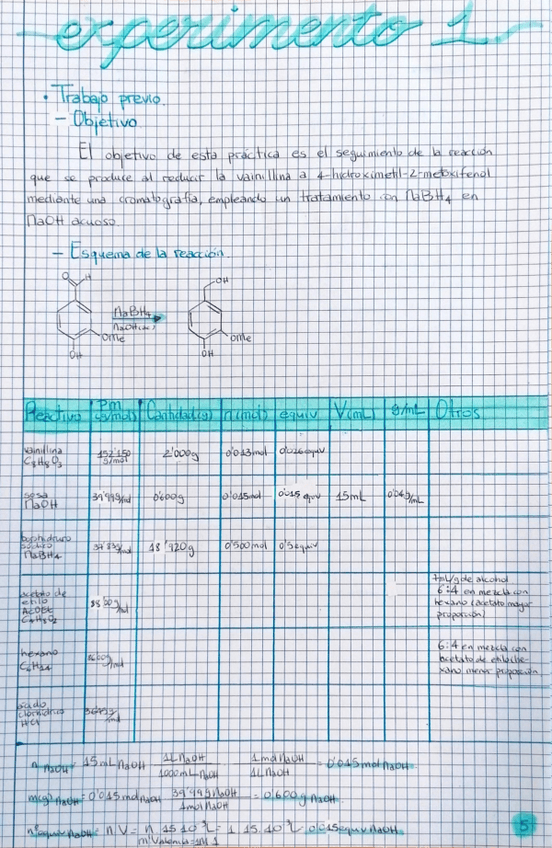 experimento 1
• Trabajo previo.
- Objetivo
El objetivo de esta práctica es el seguimiento de la reacción
que se produce al reducir la vainillina a 4-hidroximetil-2-metoxifenol
mediante una cromatografía, empleando un tratamiento con NaBH4 en
NaOH acuoso.
- Esquema de la reacción.
O H OH
NaBH4
NaOH(ac)
OMe OMe
OH OH
Reactivo Pm (g/mol) Cantidad(g) n(mol) equiv V(mL) g/mL Otros
vainillina C8H8O3 152'150 g/mol 2'000g 0'013mol 0'026equiv
sosa NaOH 39'99g/mol 0'600g 0'015mol 0'015 equiv 15mL 0'04g/mL
NaBH4 18'920g 0'500mol 0'5equiv
acetato de etilo AcOEt C4H8O2
6:4 en mezcla con
hexano (acetato mayor
proporción)
hexano C6H14
6:4 en mezcla con
acetato de etilo, he-
xano menor proporción
ácido clorhídrico HCl
n NaOH = 15mL NaOH · 1L NaOH / 1000mL NaOH · 1mol NaOH / 1L NaOH = 0'015mol NaOH
m(g) NaOH = 0'015mol NaOH · 39'99g NaOH / 1mol NaOH = 0'600g NaOH
nº equiv NaOH = n.V = 0'015equiv NaOH
5